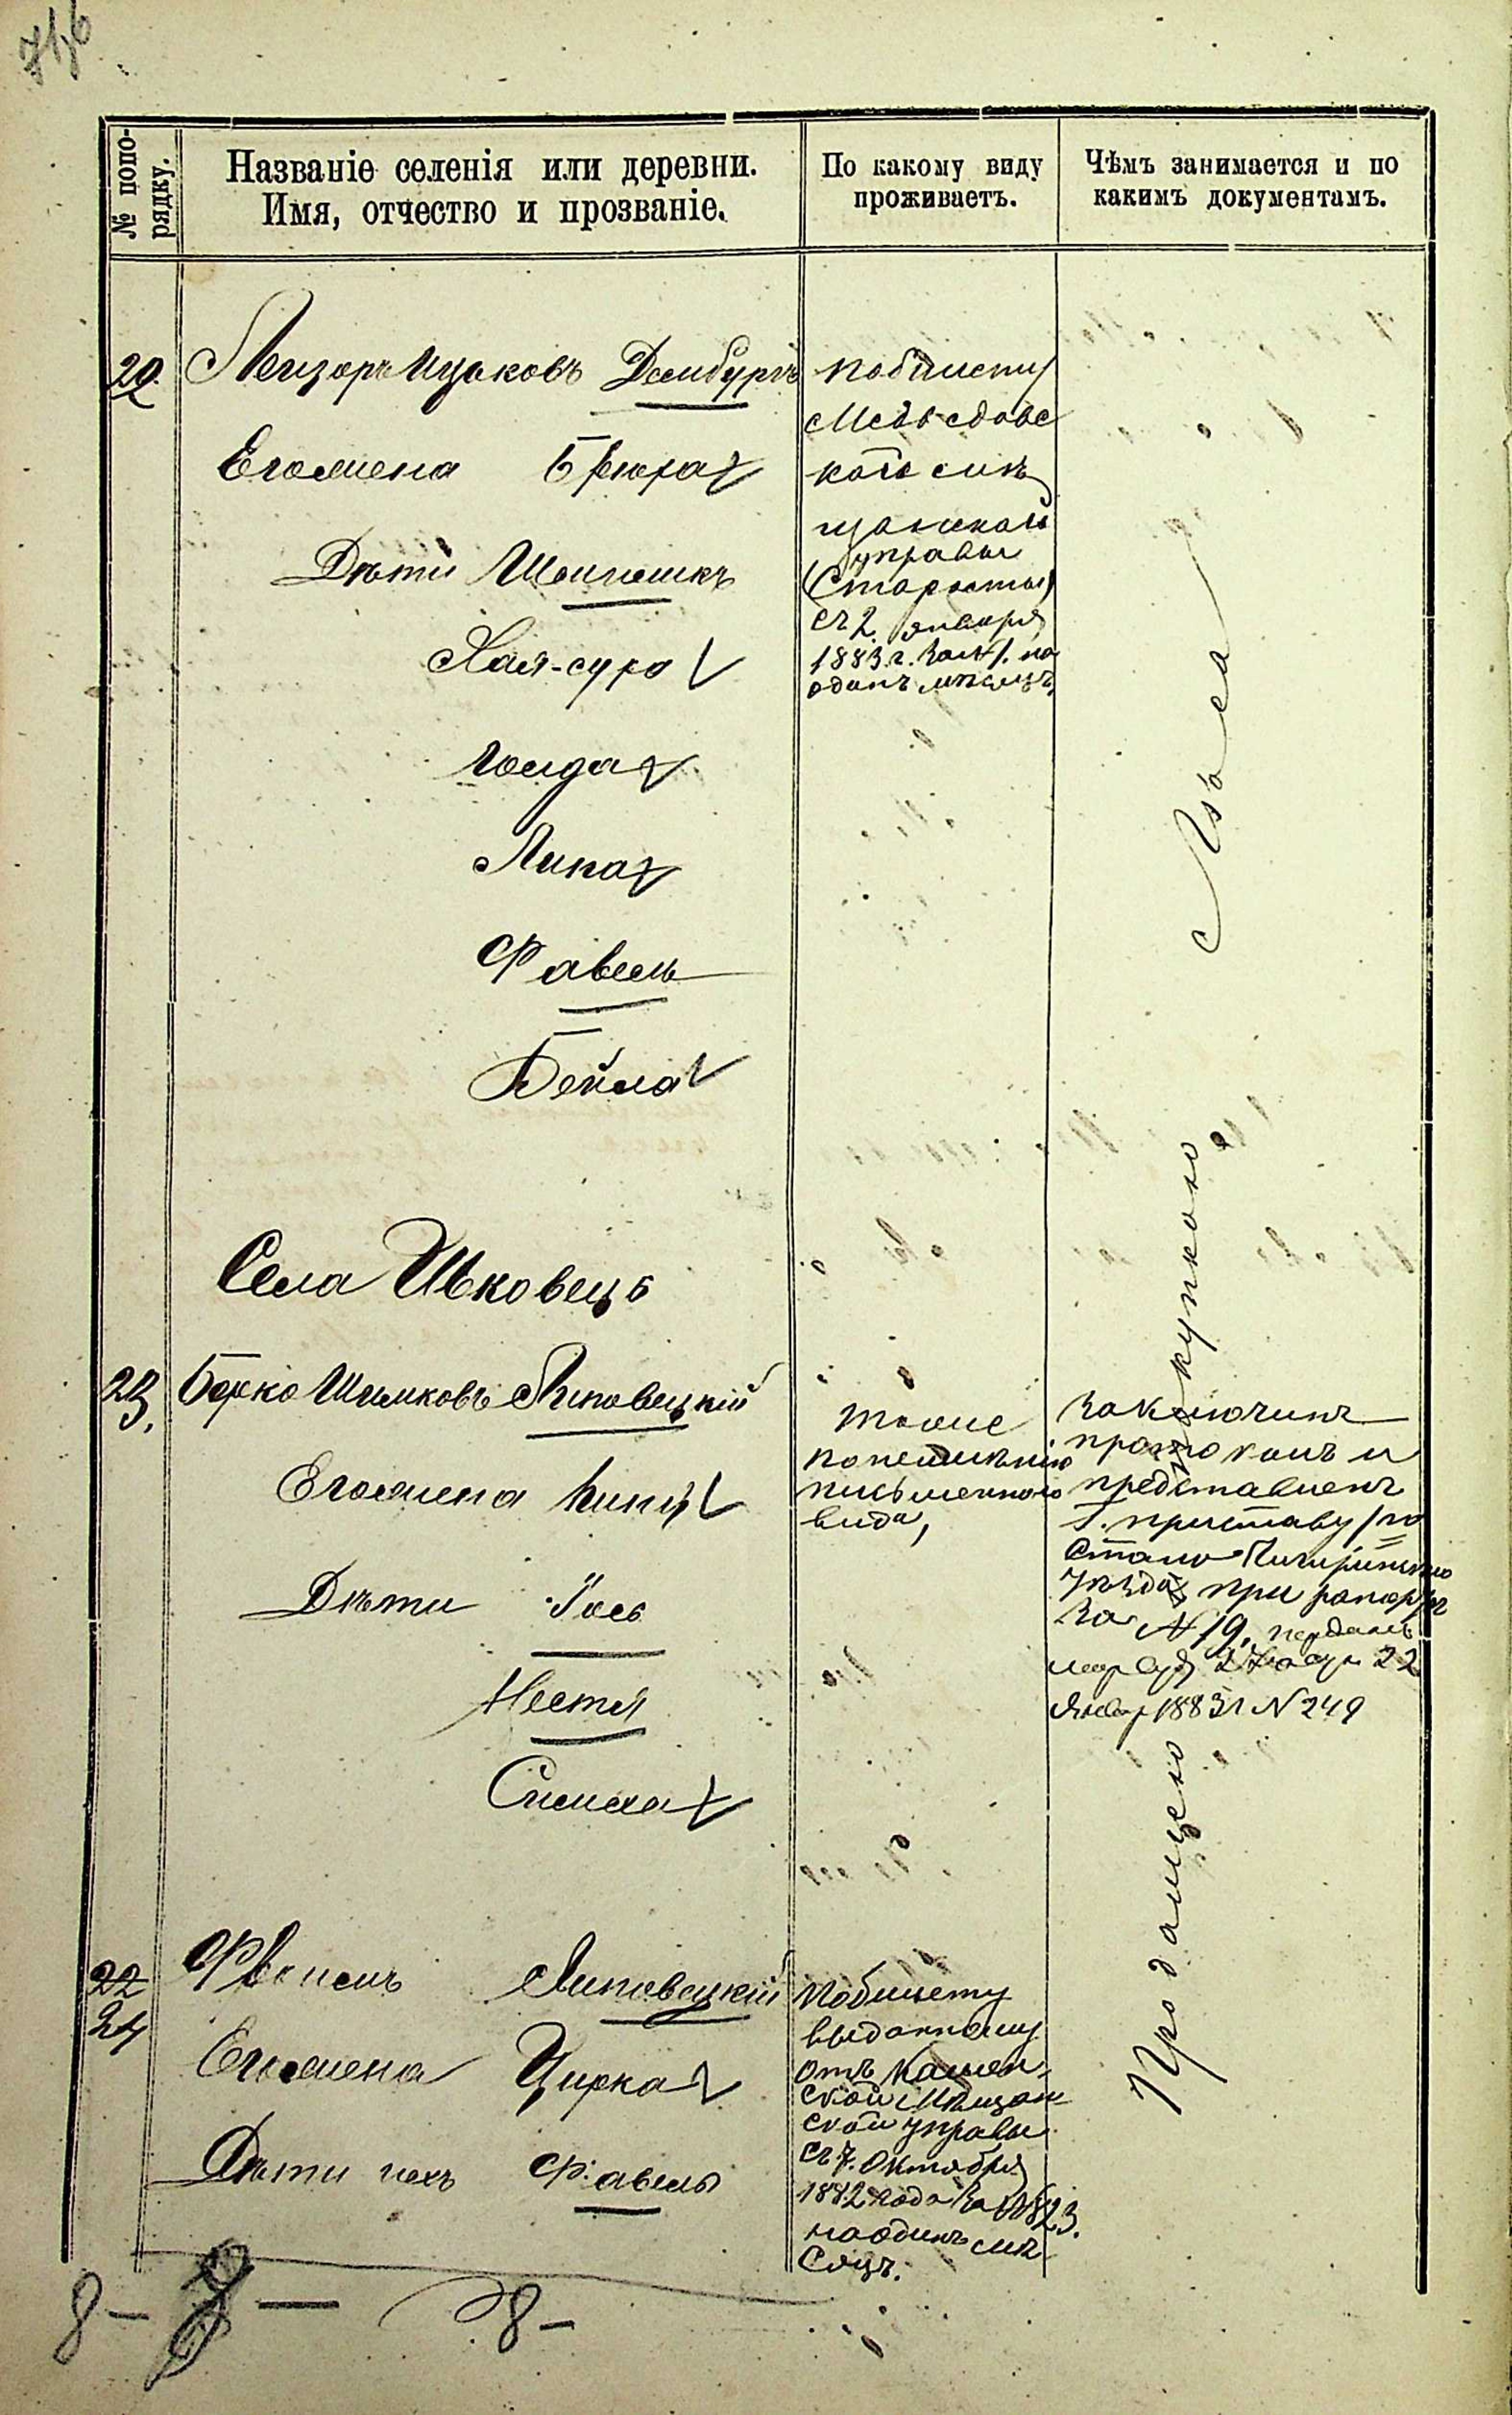 746
№ попо-
рядку.
Названіе селенія или деревни.
Имя, отчество и прозваніе.
По какому виду
проживаетъ.
Чѣмъ занимается и по
какимъ документамъ.
22
Лейзоръ Ицковъ Дембургъ
Его жена Брюха
Дѣти
Хая-сура
Голда
Липа
Файвель
Бейла
по билету
Медвѣдовс
кого мѣ
щанской
управы
(Старосты)
съ 2 января
1883 г. за № 1. на
одинъ мѣсяцъ
Лѣса
Села Ивковецъ
23.
Берко Шимковъ Липовецкій
Его жена Кипя
Дѣти Іось
Нестя
Симха
тоже
по неимѣнію
письменного
вида,
заключенъ
протоколъ и
представленъ
Г. приставу 1го
Стана Чигиринского
уѣзда при рапортѣ
за № 19, переданъ
мир Суд 2 22
Январ 1883 г № 249
Продажею купкою
22
24
Липовецкій
Его жена Цирка
Дѣти ихъ Файвель
по билету
выданному
отъ Камен-
ской Мѣщан-
ской управы
съ 7. Октября
1882 года за № 823.
на одинъ мѣ-
сяцъ.
8 – – 8 –